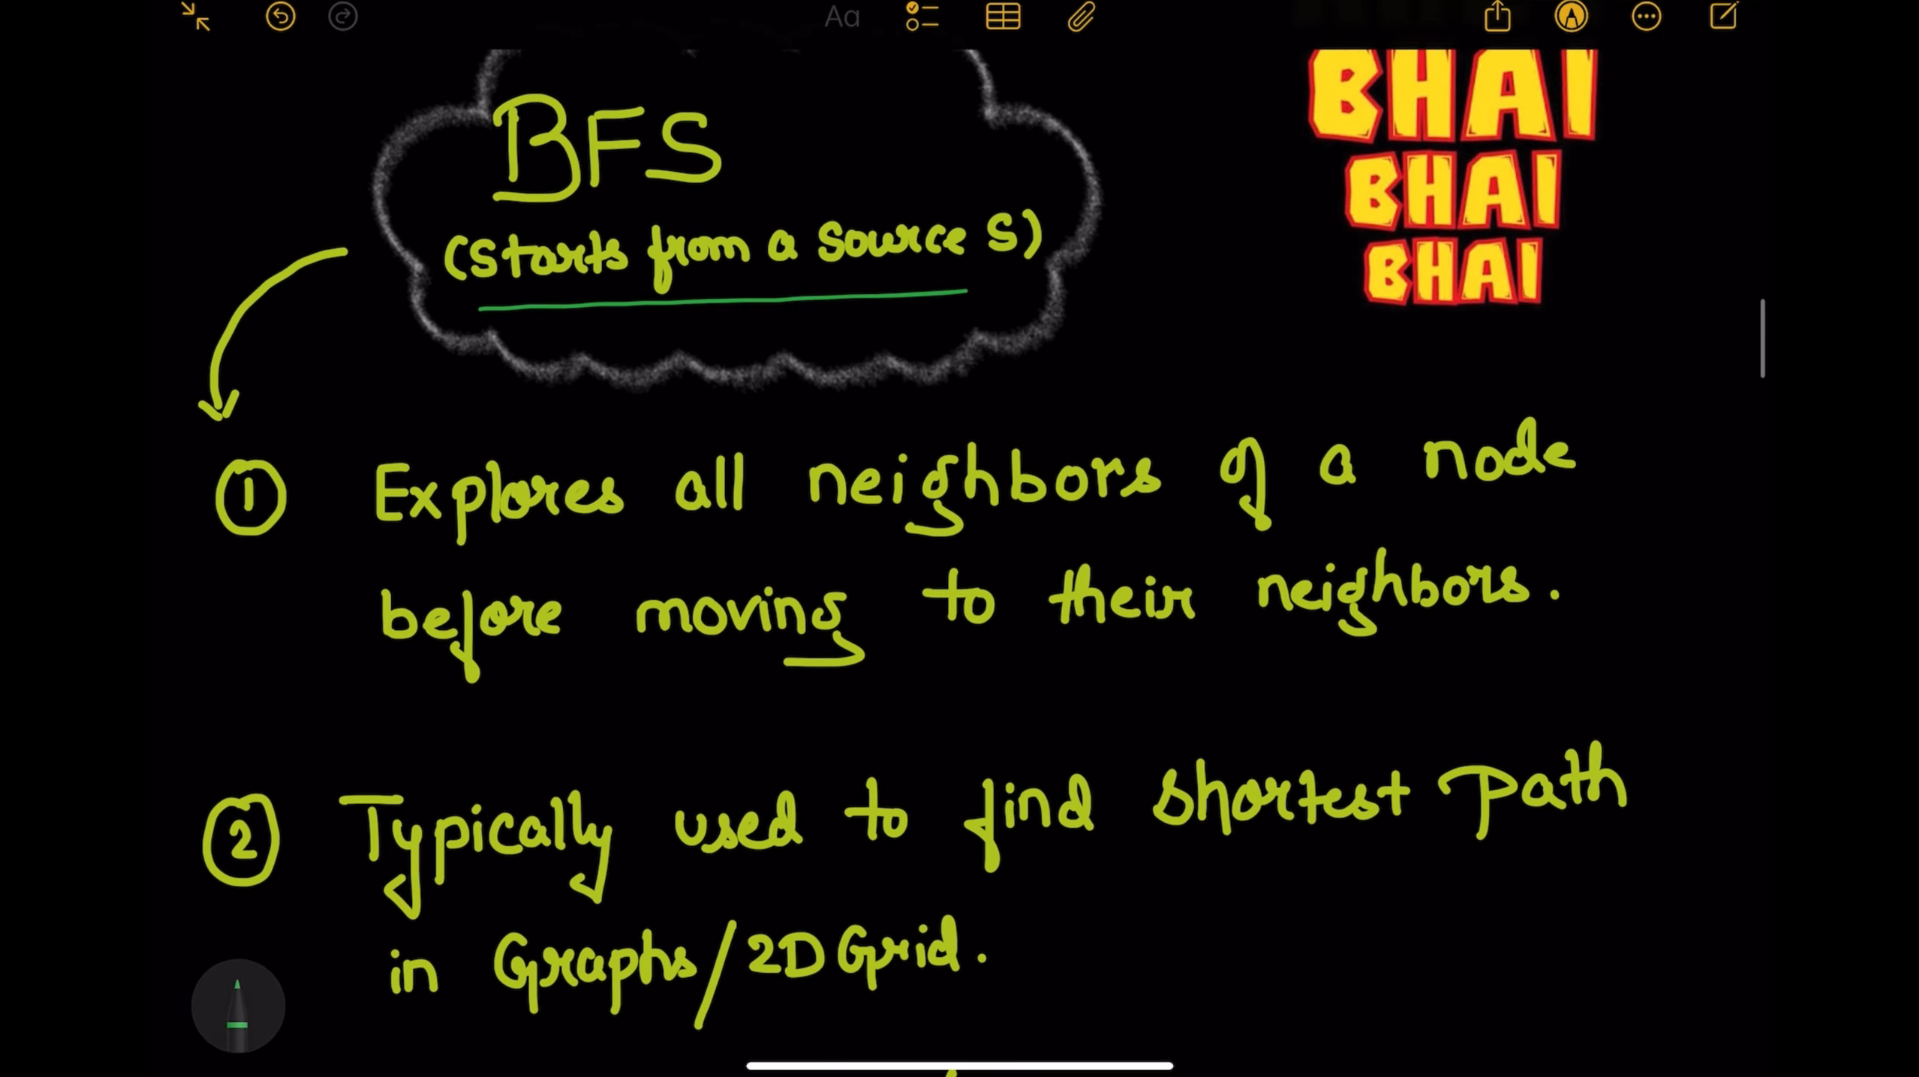 Aa
BHAI
BHAI
BHAI
BFS
(Starts from a source S)
① Explores all neighbors of a node
before moving to their neighbors.
② Typically used to find shortest path
in Graphs/2D Grid.